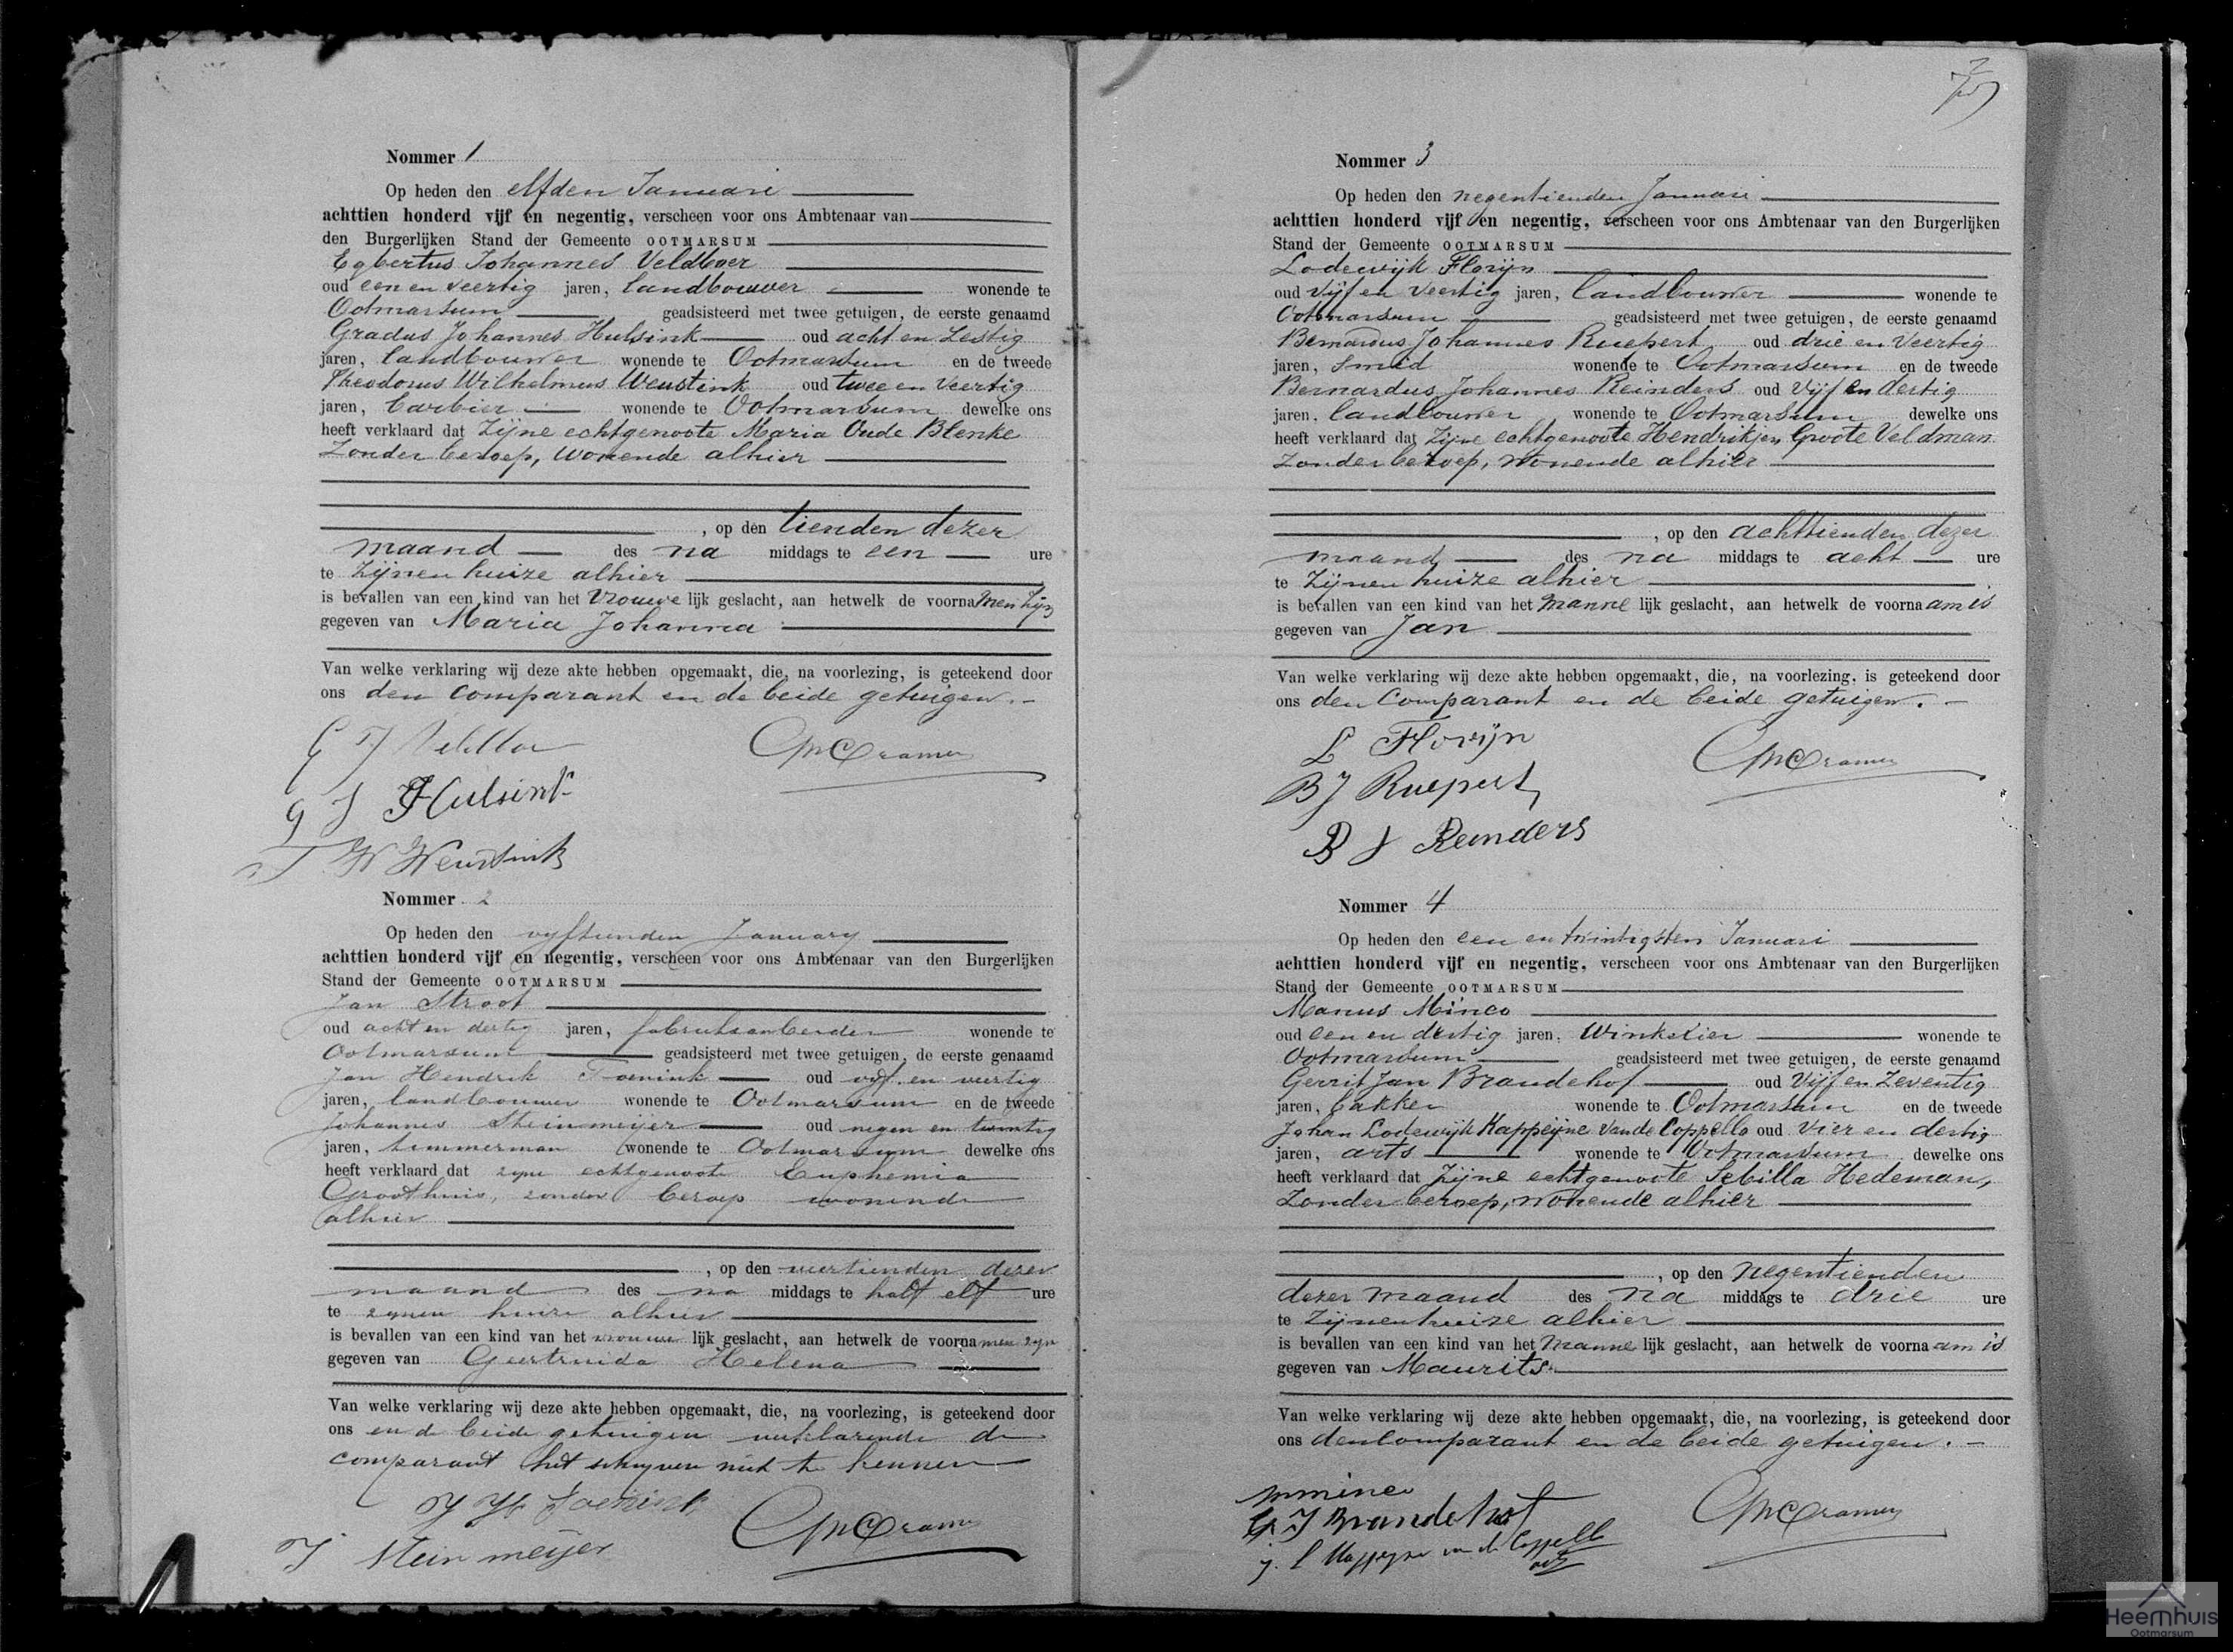 Nommer 1
Op heden den elfden Januari
achttien honderd vijf en negentig, verscheen voor ons Ambtenaar van
den Burgerlijken Stand der Gemeente OOTMARSUM
Egbertus Johannes Veldboer
oud een en veertig jaren, landbouwer wonende te
Ootmarsum geadsisteerd met twee getuigen, de eerste genaamd
Gradus Johannes Hulsink oud acht en Zestig
jaren, landbouwer wonende te Ootmarsum en de tweede
Theodorus Wilhelmus Weustink oud twee en Veertig
jaren, barbier wonende te Ootmarsum dewelke ons
heeft verklaard dat Zijne echtgenoote Maria Oude Blenke
Zonder beroep, wonende alhier
, op den tienden dezer
maand des na middags te een ure
te Zijnen huize alhier
is bevallen van een kind van het Vrouwe lijk geslacht, aan hetwelk de voorna men zijn
gegeven van Maria Johanna
Van welke verklaring wij deze akte hebben opgemaakt, die, na voorlezing, is geteekend door
ons den comparant en de beide getuigen.
E J Veldboer
G J Hulsink
T W Weustink
Cramer
Nommer 2
Op heden den vyftienden January
achttien honderd vijf en negentig, verscheen voor ons Ambtenaar van den Burgerlijken
Stand der Gemeente OOTMARSUM
Jan Stroot
oud acht en dertig jaren, fabrieksarbeider wonende te
Ootmarsum geadsisteerd met twee getuigen, de eerste genaamd
Jan Hendrik oud vyf en veertig
jaren, landbouwer wonende te Ootmarsum en de tweede
Johannes Steinmeijer oud negen en twintig
jaren, timmerman wonende te Ootmarsum dewelke ons
heeft verklaard dat zyne echtgenoote Euphemia
Groothuis, zonder beroep wonende
alhier
, op den veertienden dezer
maand des na middags te half elf ure
te zynen huize alhier
is bevallen van een kind van het vrouwe lijk geslacht, aan hetwelk de voorna men zyn
gegeven van Geertruida Helena
Van welke verklaring wij deze akte hebben opgemaakt, die, na voorlezing, is geteekend door
ons en de beide getuigen verklarende de
comparant het schryven niet te kennen
J H
J Steinmeijer
Cramer
Nommer 3
Op heden den negentienden Januari
achttien honderd vijf en negentig, verscheen voor ons Ambtenaar van den Burgerlijken
Stand der Gemeente OOTMARSUM
Lodewijk Florijn
oud Vijf en Veertig jaren, landbouwer wonende te
Ootmarsum geadsisteerd met twee getuigen, de eerste genaamd
Bernardus Johannes Ruepert oud drie en Veertig
jaren, Smid wonende te Ootmarsum en de tweede
Bernardus Johannes Reinders oud Vijf en dertig
jaren, landbouwer wonende te Ootmarsum dewelke ons
heeft verklaard dat Zijne echtgenoote Hendrikjen Groote Veldman
Zonder beroep, wonende alhier
, op den achttienden dezer
maand des na middags te acht ure
te Zijnen huize alhier
is bevallen van een kind van het manne lijk geslacht, aan hetwelk de voorna am is
gegeven van Jan
Van welke verklaring wij deze akte hebben opgemaakt, die, na voorlezing, is geteekend door
ons den Comparant en de beide getuigen.
L Florijn
B J Ruepert
B J Reinders
Cramer
Nommer 4
Op heden den een en twintigsten Januari
achttien honderd vijf en negentig, verscheen voor ons Ambtenaar van den Burgerlijken
Stand der Gemeente OOTMARSUM
Manus Minco
oud een en dertig jaren, Winkelier wonende te
Ootmarsum geadsisteerd met twee getuigen, de eerste genaamd
Gerrit Jan Brandehof oud Vijf en Zeventig
jaren, bakker wonende te Ootmarsum en de tweede
Johan Lodewijk Kappeijne van de Coppello oud Vier en dertig
jaren, arts wonende te Ootmarsum dewelke ons
heeft verklaard dat Zijne echtgenoote Sebilla Hedeman,
Zonder beroep, wonende alhier
, op den negentienden
dezer maand des na middags te drie ure
te Zijnen huize alhier
is bevallen van een kind van het manne lijk geslacht, aan hetwelk de voorna am is
gegeven van Maurits
Van welke verklaring wij deze akte hebben opgemaakt, die, na voorlezing, is geteekend door
ons den Comparant en de beide getuigen.
M Minco
G J Brandehof
J. L Kappeyne van de Coppello
arts
Cramer
Heemhuis
Ootmarsum